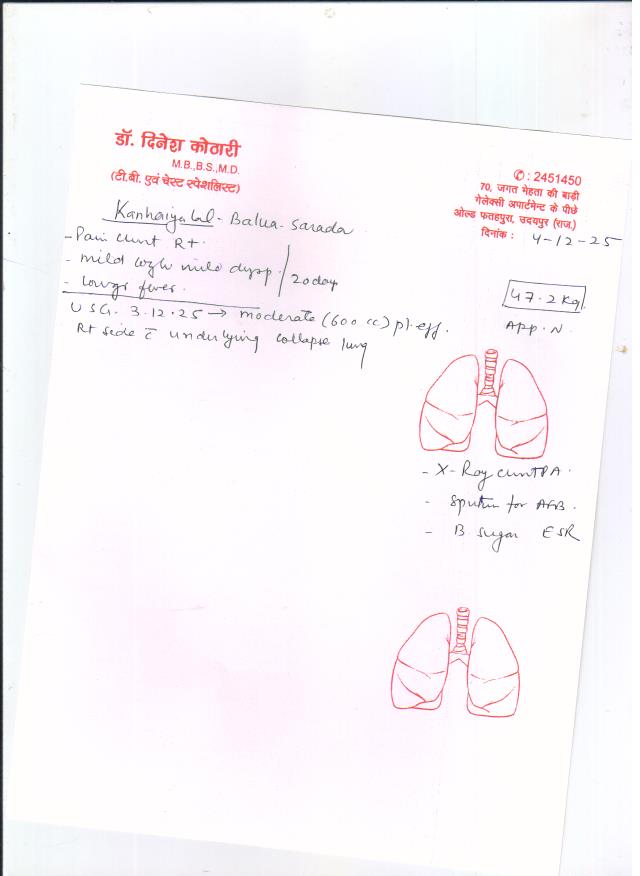 डॉ. दिनेश कोठारी
M.B.,B.S.,M.D.
(टी.बी. एवं चेस्ट स्पेशलिस्ट)
✆ : 2451450
70, जगत मेहता की बाड़ी
गेलेक्सी अपार्टमेन्ट के पीछे
ओल्ड फतहपुरा, उदयपुर (राज.)
दिनांक : 4-12-25
Kanhaiyalal - Balua - Sarada
- Pain chest Rt.
- mild cough mild dysp. / 20 day
- lowgr fever.
47.2 kg
App. N.
USG. 3.12.25 → moderate (600 cc) pl. eff.
Rt side c̄ underlying collapse lung
- X-Ray chest PA.
- Sputum for AFB.
- B sugar ESR